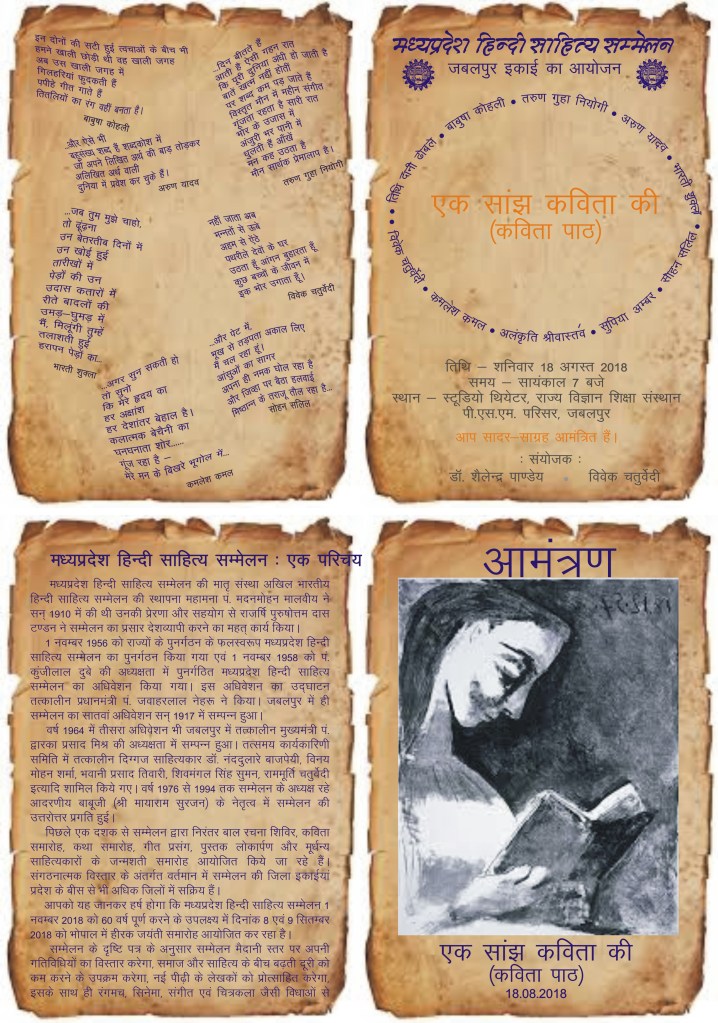 इन दोनों की सटी हुई त्वचाओं के बीच भी
हमने खाली छोड़ी थी वह खाली जगह
अब उस खाली जगह में
गिलहरियां फुदकती हैं
पपीहे गीत गाते हैं
तितलियों का रंग वहीं बनता है।
बाबुषा कोहली
...और ऐसे भी
बहुसंख्य शब्द हैं शब्दकोश में
जो अपने लिखित अर्थ की बाड़ तोड़कर
अलिखित अर्थ वाली
दुनिया में प्रवेश कर चुके हैं।
अरुण यादव
...जब तुम मुझे चाहो,
तो ढूंढ़ना
उन बेतरतीब दिनों में
उन खोई हुई
तारीखों में
पेड़ों की उन
उदास कतारों में
रीते बादलों की
उमड़-घुमड़ में
मैं, मिलूंगी तुम्हें
तलाशती हुई
हरापन पेड़ों का...
भारती शुक्ला
...अगर सुन सकती हो
तो सुनो
कि मेरे हृदय का
हर अक्षांश
हर देशांतर बेहाल है।
कलात्मक बेचैनी का
घनघनाता शोर......
गूंज रहा है –
मेरे मन के बिखरे भूगोल में...
कमलेश कमल
...दिन बीतते हैं
आती है ऐसी गहन रात
कि पूरी दुनिया अंधी हो जाती है
बातें खत्म नहीं होतीं
पर शब्द कम पड़ जाते हैं
विस्तृत मौन में महीन संगीत
गूंजता रहता है सारी रात
भोर के उजास में
अंजुरी भर पानी में
धुलती हैं आँखें
मन कह उठता है
मौन सार्थक प्रेमालाप है।
तरुण गुहा नियोगी
नहीं जाता अब
मन्नतों से ऊबे
अहम से ऐंठे
पथरीले देवों के घर
उठता हूँ आंगन बुहारता हूँ
कुछ बच्चों के जीवन में
इक भोर उगाता हूँ।
विवेक चतुर्वेदी
...और पेट में,
भूख से तड़पता अकाल लिए
मैं चल रहा हूं।
आंसुओं का सागर
अपना ही नमक घोल रहा है
और जिव्हा पर बैठा हलवाई
मिष्ठान्न के तराजू तौल रहा है...
सोहन सलिल
मध्यप्रदेश हिन्दी साहित्य सम्मेलन
जबलपुर इकाई का आयोजन
• तिथि दानी ढोबले • बाबुषा कोहली • तरुण गुहा नियोगी • अरुण यादव • भारती शुक्ल
• विवेक चतुर्वेदी • कमलेश कमल • अलंकृति श्रीवास्तव • सुपिया अम्बर • सोहन सलिल •
एक सांझ कविता की
(कविता पाठ)
तिथि – शनिवार 18 अगस्त 2018
समय – सायंकाल 7 बजे
स्थान – स्टूडियो थियेटर, राज्य विज्ञान शिक्षा संस्थान
पी.एस.एम. परिसर, जबलपुर
आप सादर–साग्रह आमंत्रित हैं।
: संयोजक :
डॉ. शैलेन्द्र पाण्डेय • विवेक चतुर्वेदी
मध्यप्रदेश हिन्दी साहित्य सम्मेलन : एक परिचय
मध्यप्रदेश हिन्दी साहित्य सम्मेलन की मातृ संस्था अखिल भारतीय
हिन्दी साहित्य सम्मेलन की स्थापना महामना पं. मदनमोहन मालवीय ने
सन् 1910 में की थी उनकी प्रेरणा और सहयोग से राजर्षि पुरुषोत्तम दास
टण्डन ने सम्मेलन का प्रसार देशव्यापी करने का महत् कार्य किया।
1 नवम्बर 1956 को राज्यों के पुनर्गठन के फलस्वरूप मध्यप्रदेश हिन्दी
साहित्य सम्मेलन का पुनर्गठन किया गया एवं 1 नवम्बर 1958 को पं.
कुंजीलाल दुबे की अध्यक्षता में पुनर्गठित मध्यप्रदेश हिन्दी साहित्य
सम्मेलन का अधिवेशन किया गया। इस अधिवेशन का उद्घाटन
तत्कालीन प्रधानमंत्री पं. जवाहरलाल नेहरू ने किया। जबलपुर में ही
सम्मेलन का सातवां अधिवेशन सन् 1917 में सम्पन्न हुआ।
वर्ष 1964 में तीसरा अधिवेशन भी जबलपुर में तत्कालीन मुख्यमंत्री पं.
द्वारका प्रसाद मिश्र की अध्यक्षता में सम्पन्न हुआ। तत्समय कार्यकारिणी
समिति में तत्कालीन दिग्गज साहित्यकार डॉ. नंददुलारे बाजपेयी, विनय
मोहन शर्मा, भवानी प्रसाद तिवारी, शिवमंगल सिंह सुमन, राममूर्ति चतुर्वेदी
इत्यादि शामिल किए गए। वर्ष 1976 से 1994 तक सम्मेलन के अध्यक्ष रहे
आदरणीय बाबूजी (श्री मायाराम सुरजन) के नेतृत्व में सम्मेलन की
उत्तरोत्तर प्रगति हुई।
पिछले एक दशक से सम्मेलन द्वारा निरंतर बाल रचना शिविर, कविता
समारोह, कथा समारोह, गीत प्रसंग, पुस्तक लोकार्पण और मूर्धन्य
साहित्यकारों के जन्मशती समारोह आयोजित किये जा रहे हैं।
संगठनात्मक विस्तार के अंतर्गत वर्तमान में सम्मेलन की जिला इकाईयां
प्रदेश के बीस से भी अधिक जिलों में सक्रिय हैं।
आपको यह जानकर हर्ष होगा कि मध्यप्रदेश हिन्दी साहित्य सम्मेलन 1
नवम्बर 2018 को 60 वर्ष पूर्ण करने के उपलक्ष्य में दिनांक 8 एवं 9 सितम्बर
2018 को भोपाल में हीरक जयंती समारोह आयोजित कर रहा है।
सम्मेलन के दृष्टि पत्र के अनुसार सम्मेलन मैदानी स्तर पर अपनी
गतिविधियों का विस्तार करेगा, समाज और साहित्य के बीच बढती दूरी को
कम करने के उपक्रम करेगा, नई पीढ़ी के लेखकों को प्रोत्साहित करेगा,
इसके साथ ही रंगमच, सिनेमा, संगीत एवं चित्रकला जैसी विधाओं से
आमंत्रण
एक सांझ कविता की
(कविता पाठ)
18.08.2018